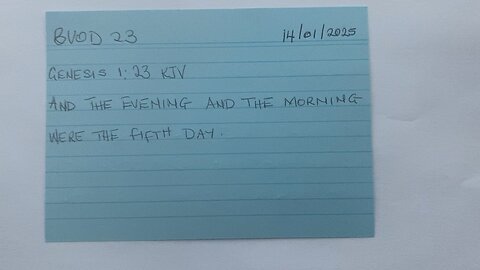 BVOD 23 14/01/2025
GENESIS 1:23 KJV
AND THE EVENING AND THE MORNING
WERE THE FIFTH DAY.